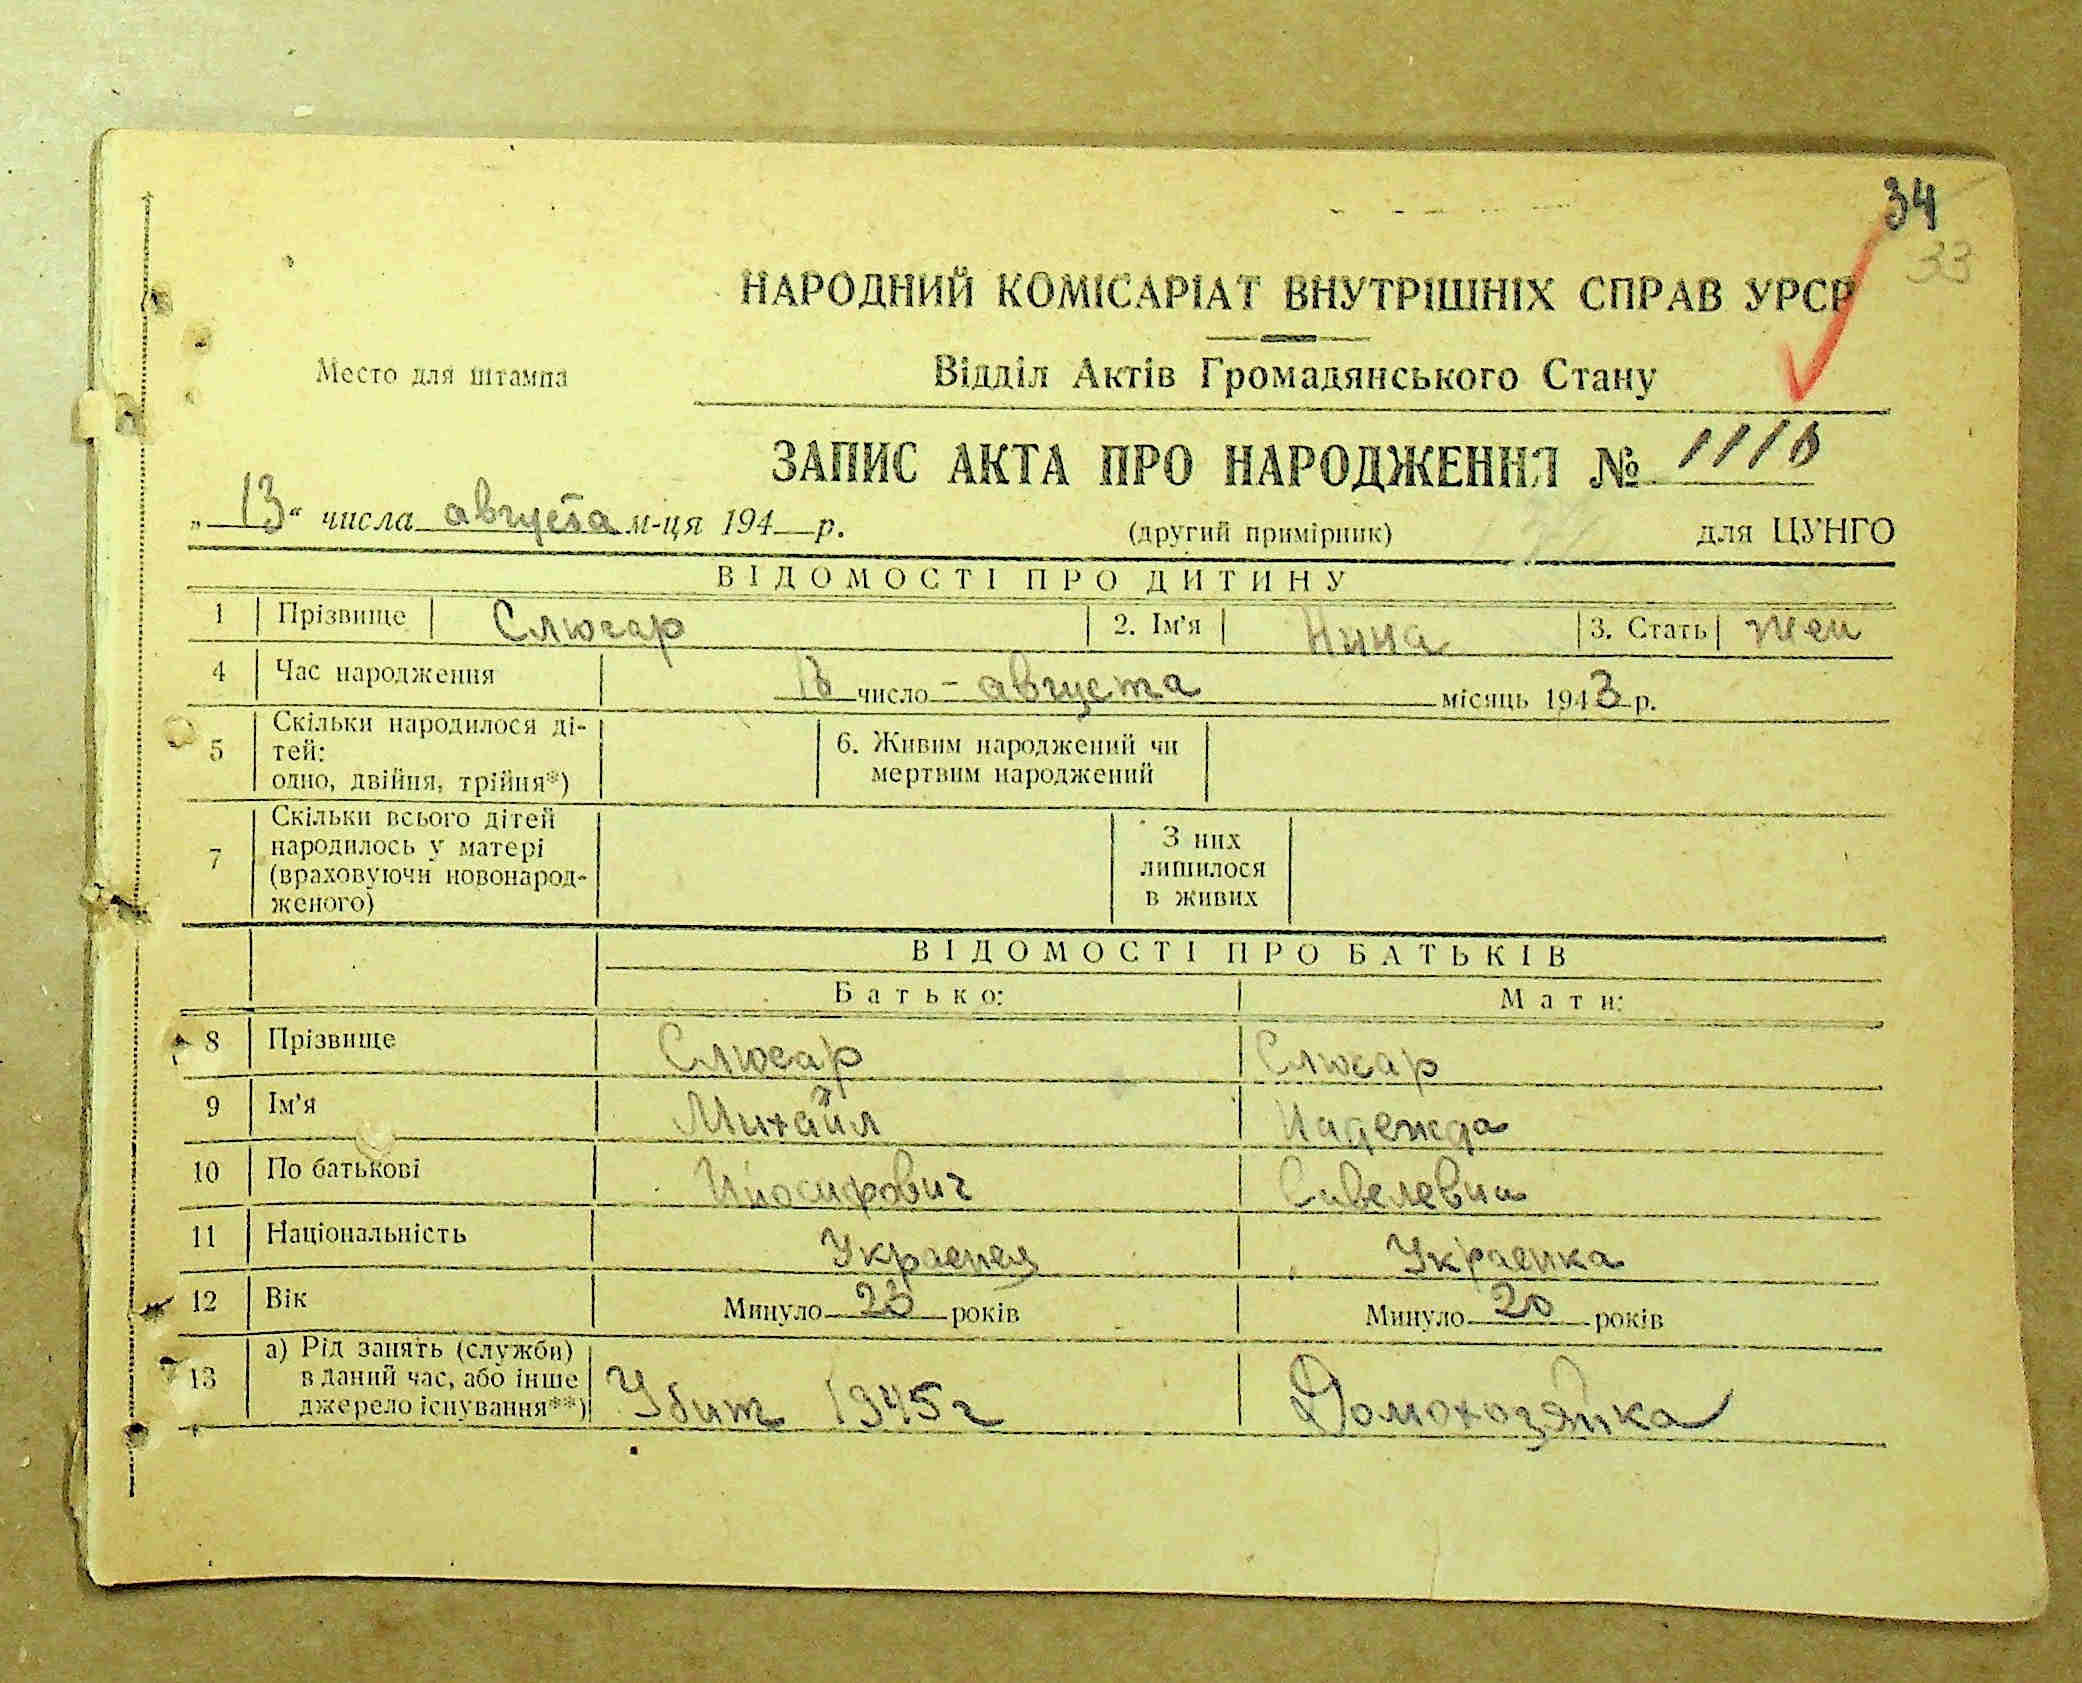 34
33
НАРОДНИЙ КОМІСАРІАТ ВНУТРІШНІХ СПРАВ УРСР
Место для штампа
Відділ Актів Громадянського Стану
ЗАПИС АКТА ПРО НАРОДЖЕННЯ №
„ 13 “ числа августа м-ця 194 р. (другий примірник) для ЦУНГО
ВІДОМОСТІ ПРО ДИТИНУ
1 Прізвище Слюсар 2. Ім'я Нина 3. Стать жен
4 Час народження число – августа місяць 1943 р.
5 Скільки народилося ді-
тей:
одно, двійня, трійня*)
6. Живим народжений чи
мертвим народжений
7 Скільки всього дітей
народилось у матері
(враховуючи новонарод-
женого)
З них
лишилося
в живих
ВІДОМОСТІ ПРО БАТЬКІВ
Батько: Мати:
8 Прізвище Слюсар Слюсар
9 Ім'я Михайил Надежда
10 По батькові Ийосифович Савелевна
11 Національність Украенец Украенка
12 Вік Минуло 23 років Минуло 20 років
13 а) Рід занять (служби)
в даний час, або інше
джерело існування**)
Убит 1945 г Домохозяйка